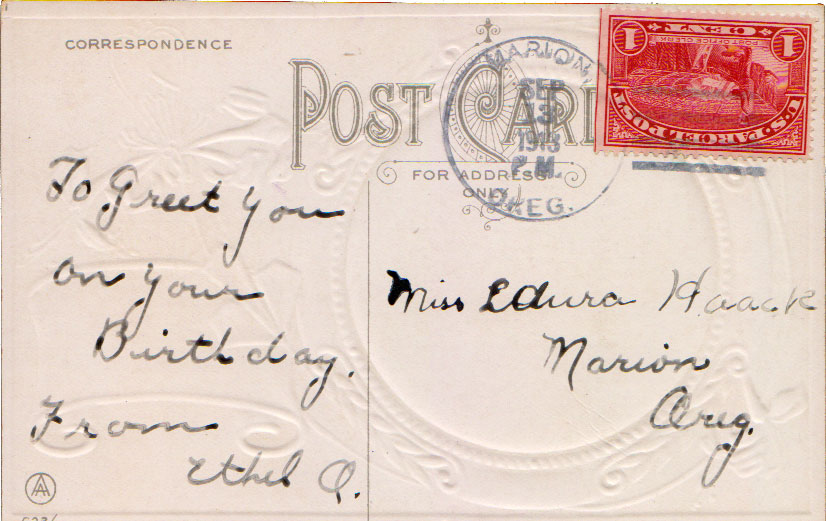 CORRESPONDENCE
POST CARD
FOR ADDRESS
ONLY
MARION
SEP
13
1913
P.M.
OREG.
1 ONE 1
CENT
POST OFFICE CLERK
U.S. PARCEL POST
To Greet You
on your
Birthday.
From
Ethel Q.
Miss Edura Haack
Marion
Oreg.
AA